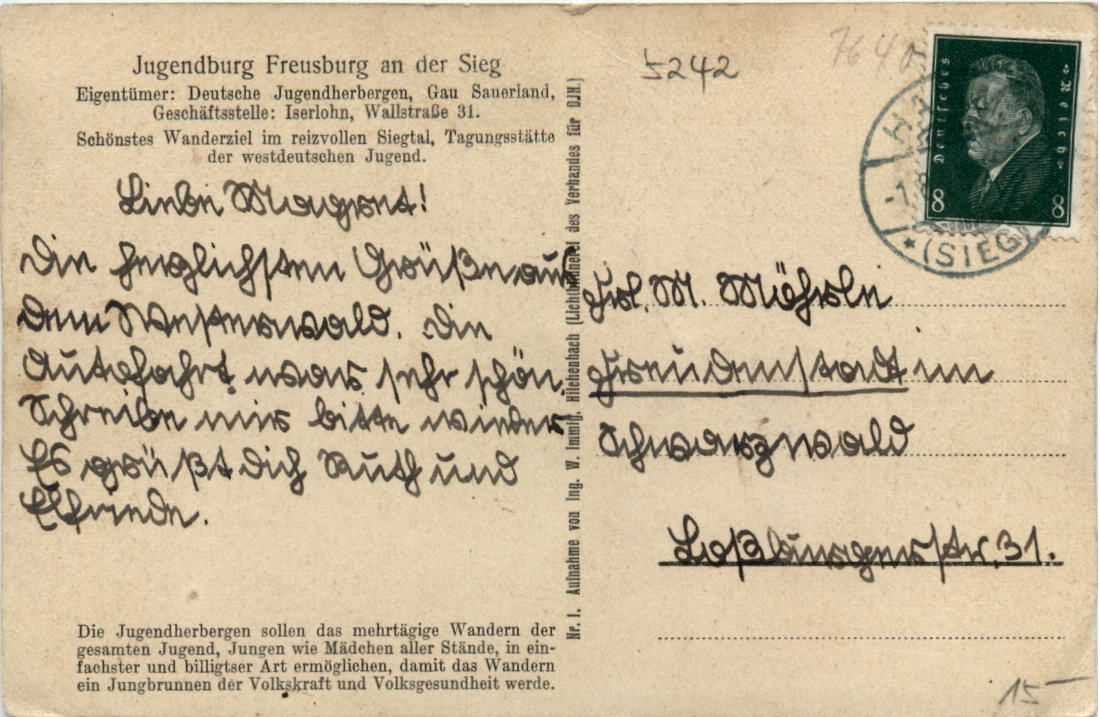 Jugendburg Freusburg an der Sieg
Eigentümer: Deutsche Jugendherbergen, Gau Sauerland,
Geschäftsstelle: Iserlohn, Wallstraße 31.
Schönstes Wanderziel im reizvollen Siegtal, Tagungsstätte
der westdeutschen Jugend.
Liebe Magret!
Die herzlichsten Grüße aus
dem Westerwald. Die
Autofahrt war sehr schön.
Schreibe mir bitte wieder
Es grüßt dich Ruth und
Elfriede.
Die Jugendherbergen sollen das mehrtägige Wandern der
gesamten Jugend, Jungen wie Mädchen aller Stände, in ein-
fachster und billigtser Art ermöglichen, damit das Wandern
ein Jungbrunnen der Volkskraft und Volksgesundheit werde.
Nr. 1. Aufnahme von Ing. W. Immig, Hilchenbach (Lichtbildnerei des Verbandes für DJH.)
5242
7640
Deutsches Reich
8 8
(SIEG)
Frl. M. Möhrle
Freudenstadt im
Schwarzwald
Loßburgerstr. 31.
15 —